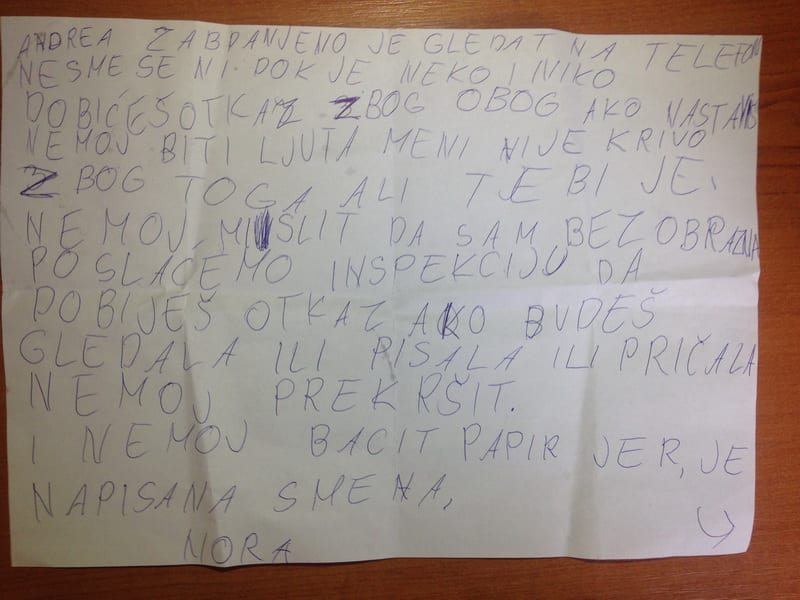 ANDREA ZABRANJENO JE GLEDAT NA TELEFON
NESME SE NI DOK JE NEKO I NIKO
DOBIĆEŠ OTKAZ ZBOG OBOG AKO NASTAVIŠ
NEMOJ BITI LJUTA MENI NIJE KRIVO
ZBOG TOGA ALI TEBI JE.
NEMOJ MISLIT DA SAM BEZOBRAZNA
POSLAĆEMO INSPEKCIJU DA
DOBIJEŠ OTKAZ AKO BUDEŠ
GLEDALA ILI PISALA ILI PRIČALA
NEMOJ PREKRŠIT.
I NEMOJ BACIT PAPIR JER, JE
NAPISANA SMENA,
NORA